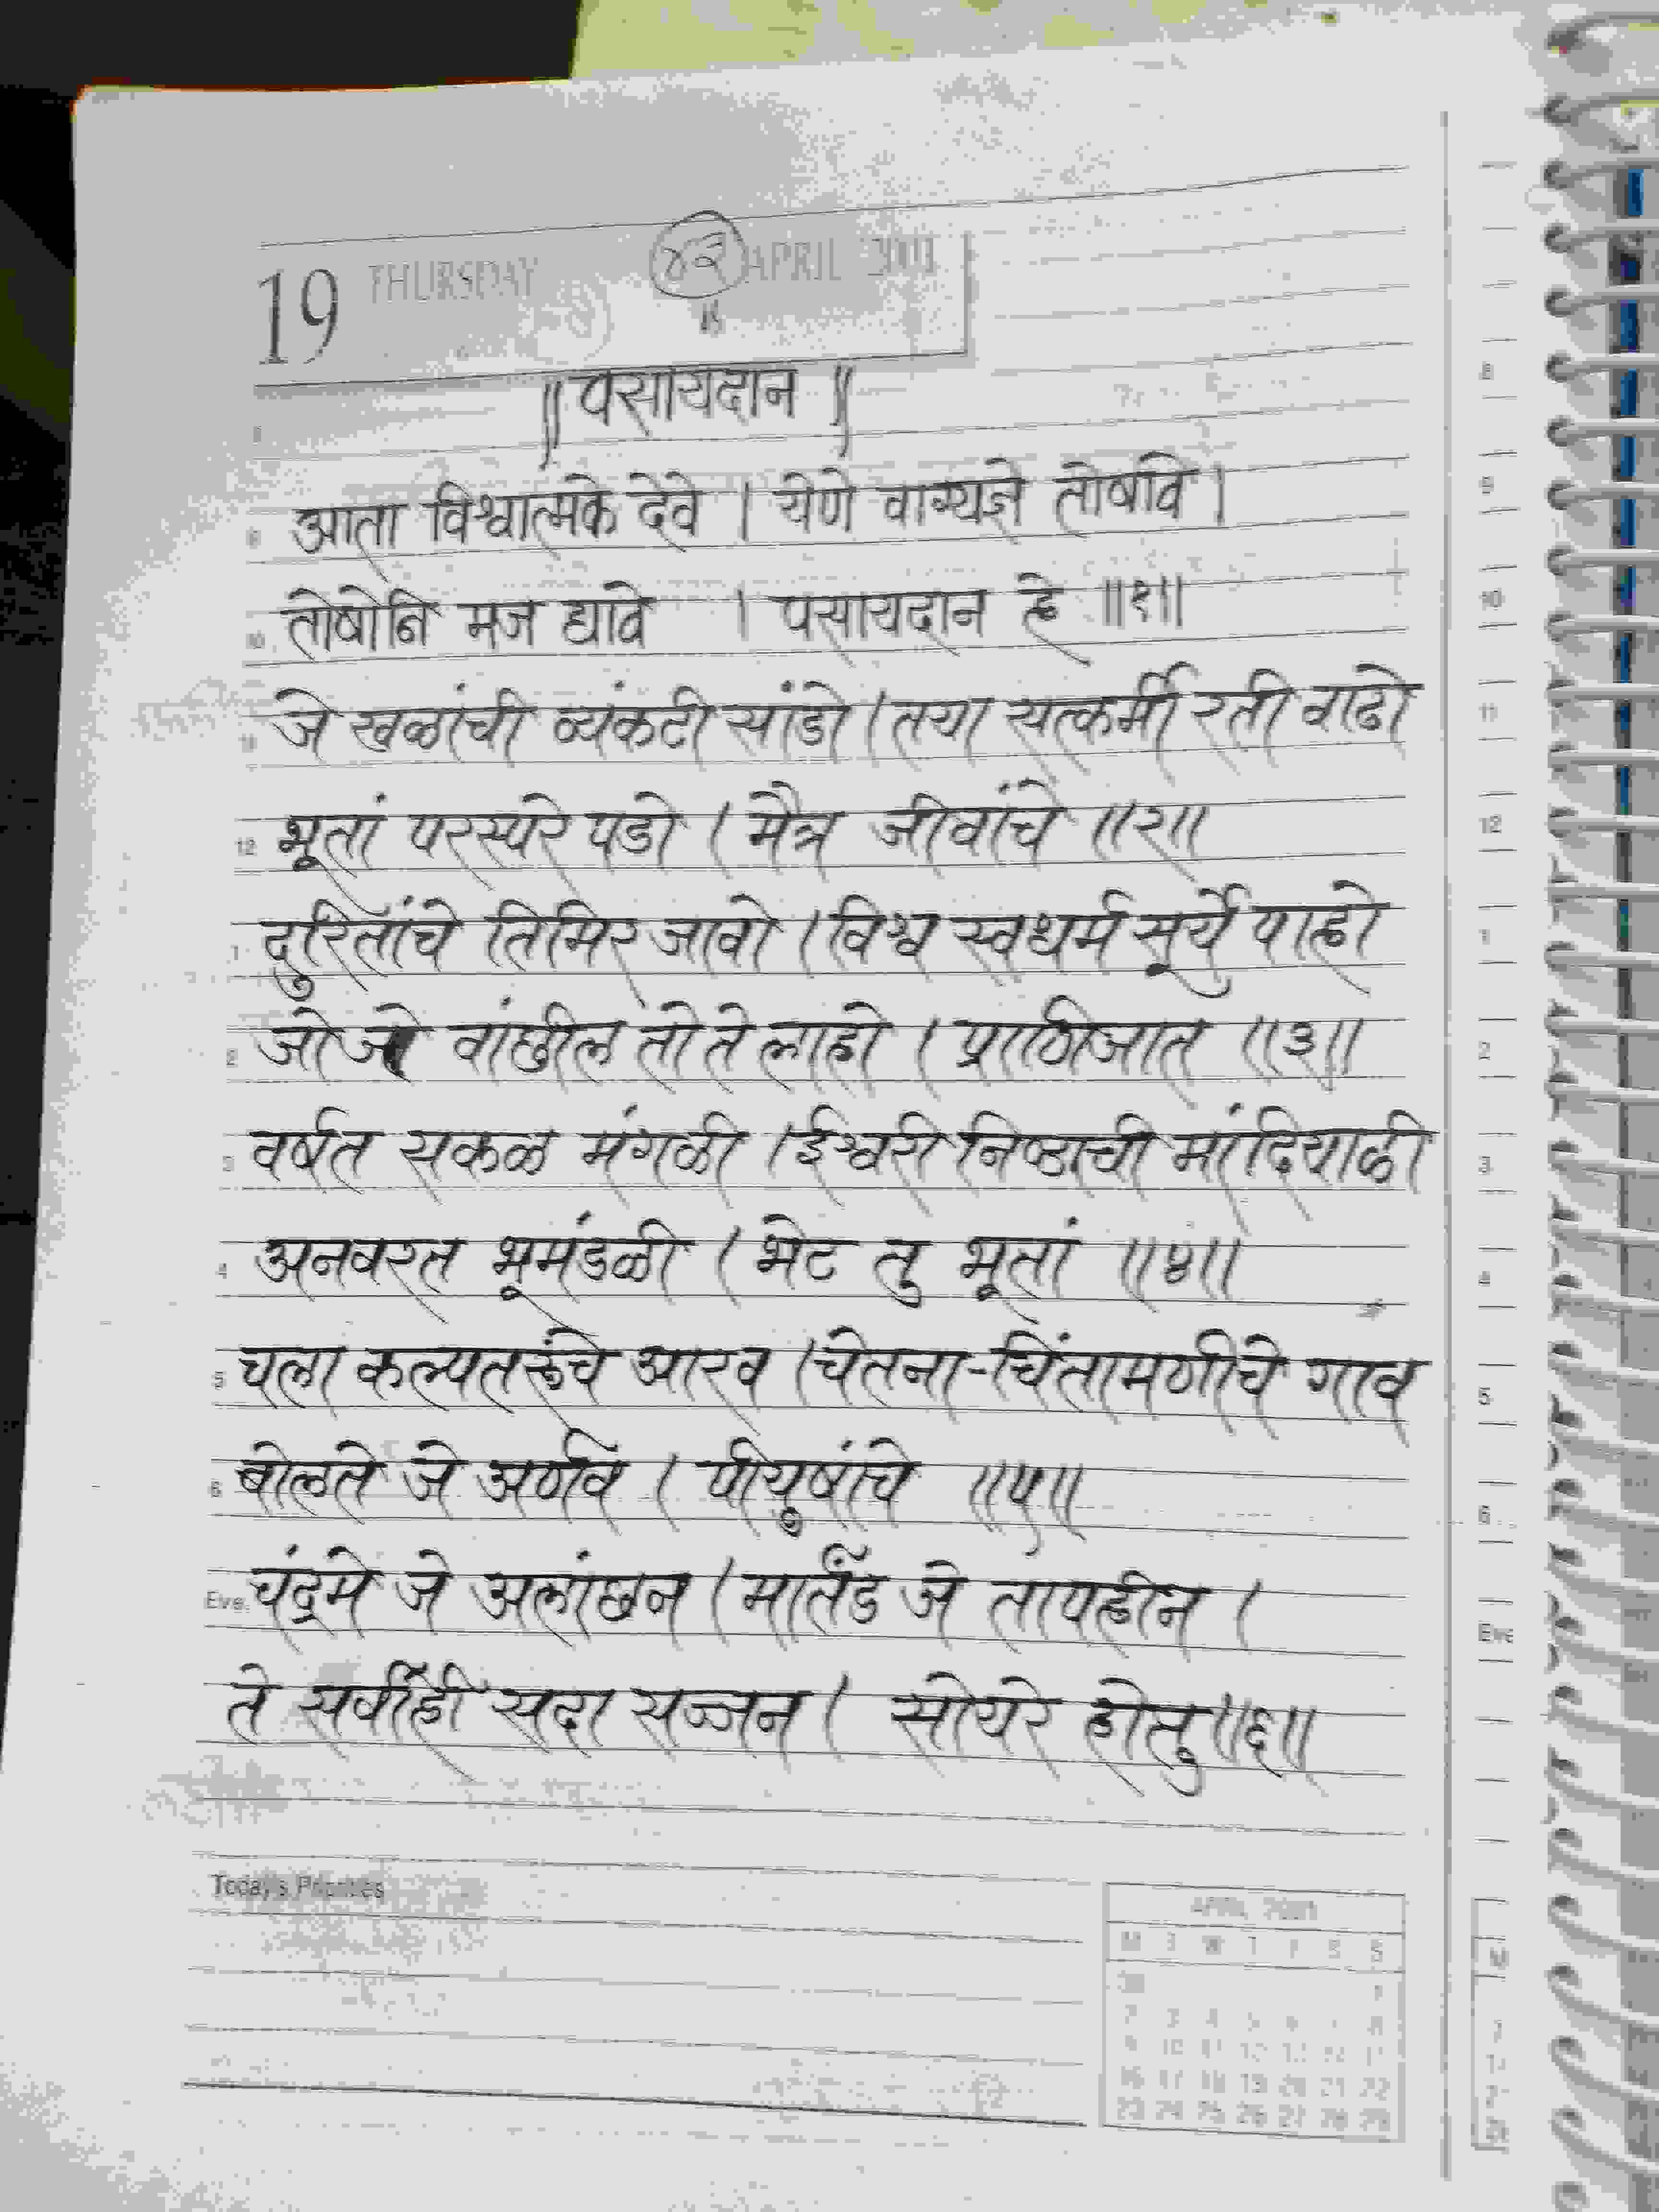 19 THURSDAY ४२ APRIL 2001
॥ पसायदान ॥
आता विश्वात्मके देवे । येणे वाग्यज्ञे तोषावे ।
तोषोनि मज द्यावे । पसायदान हे ॥१॥
जे खळांची व्यंकटी सांडो । तया सत्कर्मी रती वाढो
भूतां परस्परे पडो । मैत्र जीवांचे ॥२॥
दुरितांचे तिमिर जावो । विश्व स्वधर्म सूर्ये पाहो
जो जे वांछील तो ते लाहो । प्राणिजात ॥३॥
वर्षत सकळ मंगळी । ईश्वरी निष्ठाची मांदियाळी
अनवरत भूमंडळी । भेट तु भूतां ॥४॥
चला कल्पतरूंचे आरव । चेतना-चिंतामणीचे गाव
बोलते जे अर्णव । पीयुषांचे ॥५॥
चंद्रमे जे अलांछन । मार्तंड जे तापहीन ।
ते सर्वांही सदा सज्जन । सोयरे होतु ॥६॥
Today's Priorities
APRIL 2001
M T W T F S S
30 1
2 3 4 5 6 7 8
9 10 11 12 13 14 15
16 17 18 19 20 21 22
23 24 25 26 27 28 29